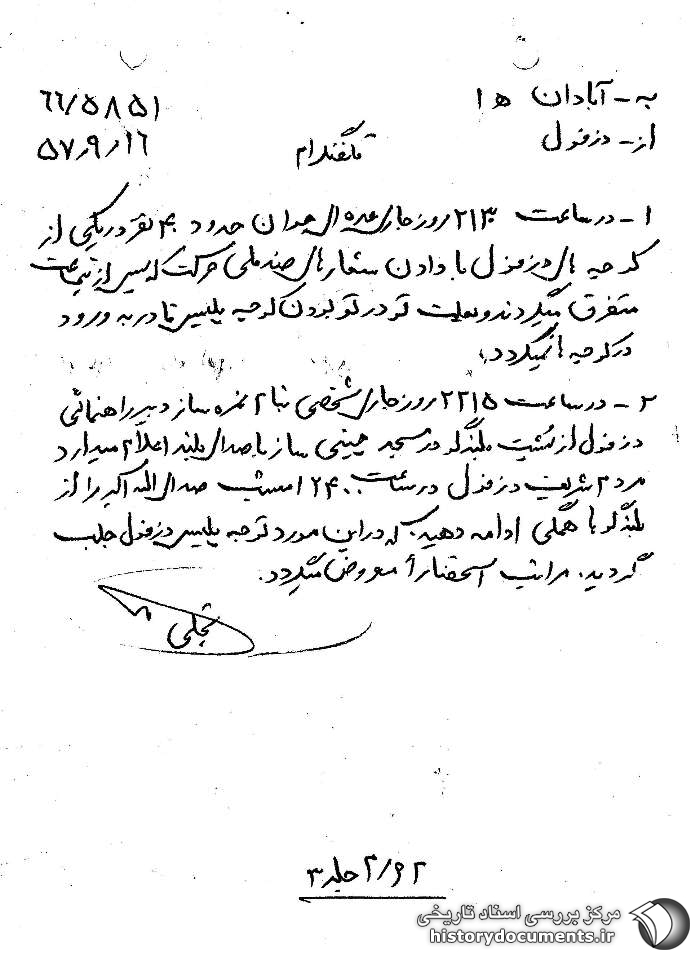 به - آبادان ه ۱ ۶۶/۵۸۵۱
از - دزفول ۵۷٫۹٫۱۶
تلفنگرام
۱ - در ساعت ۲۱۳۰ روز جاری عده ای جوان حدود ۴۰ نفر در یکی از
کوچه های دزفول با دادن شعارهای ضد ملی حرکت که پس از نیمساعت
متفرق میگردند و بعلت تو در تو بودن کوچه پلیس قادر به ورود
در کوچه ها نمیگردد.
۲ - در ساعت ۲۲۱۵ روز جاری شخصی بنام سازد دبیر راهنمائی
دزفول از پشت بلندگو در مسجد چینی ساز با صدای بلند اعلام میدارد
مردم شریف دزفول در ساعت ۲۴۰۰ امشب صدای الله اکبر را از
بلندگوها همگی ادامه دهید. که در این مورد توجه پلیس دزفول جلب
گردید. مراتب استحضاراً معروض میگردد.
تجلی
جلد ۳
مرکز بررسی اسناد تاریخی
historydocuments.ir